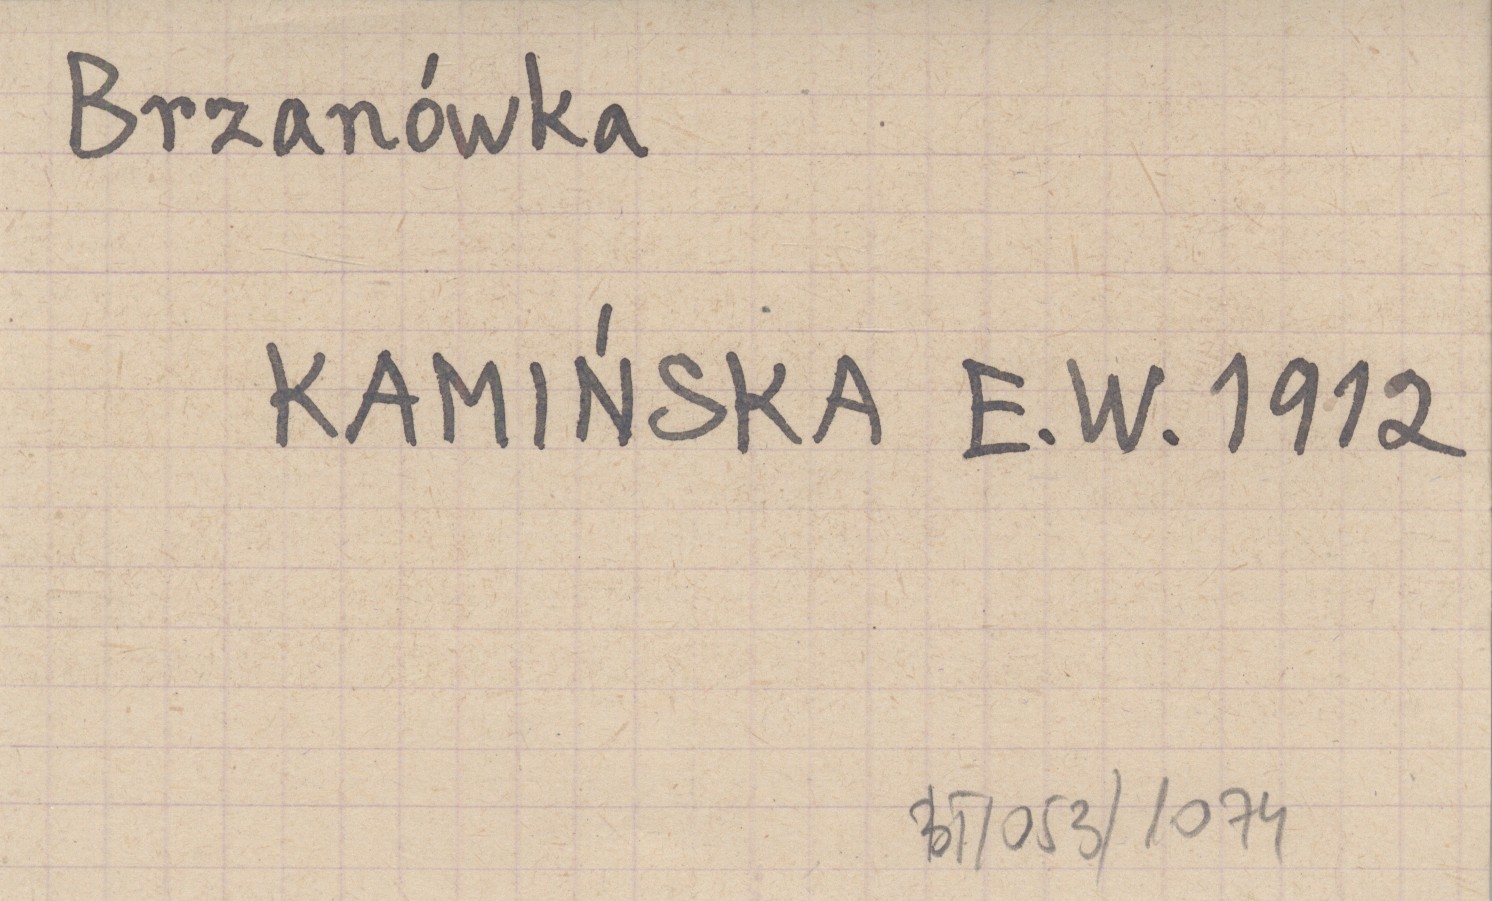 Brzanówka
KAMIŃSKA E.W. 1912
/053/1074